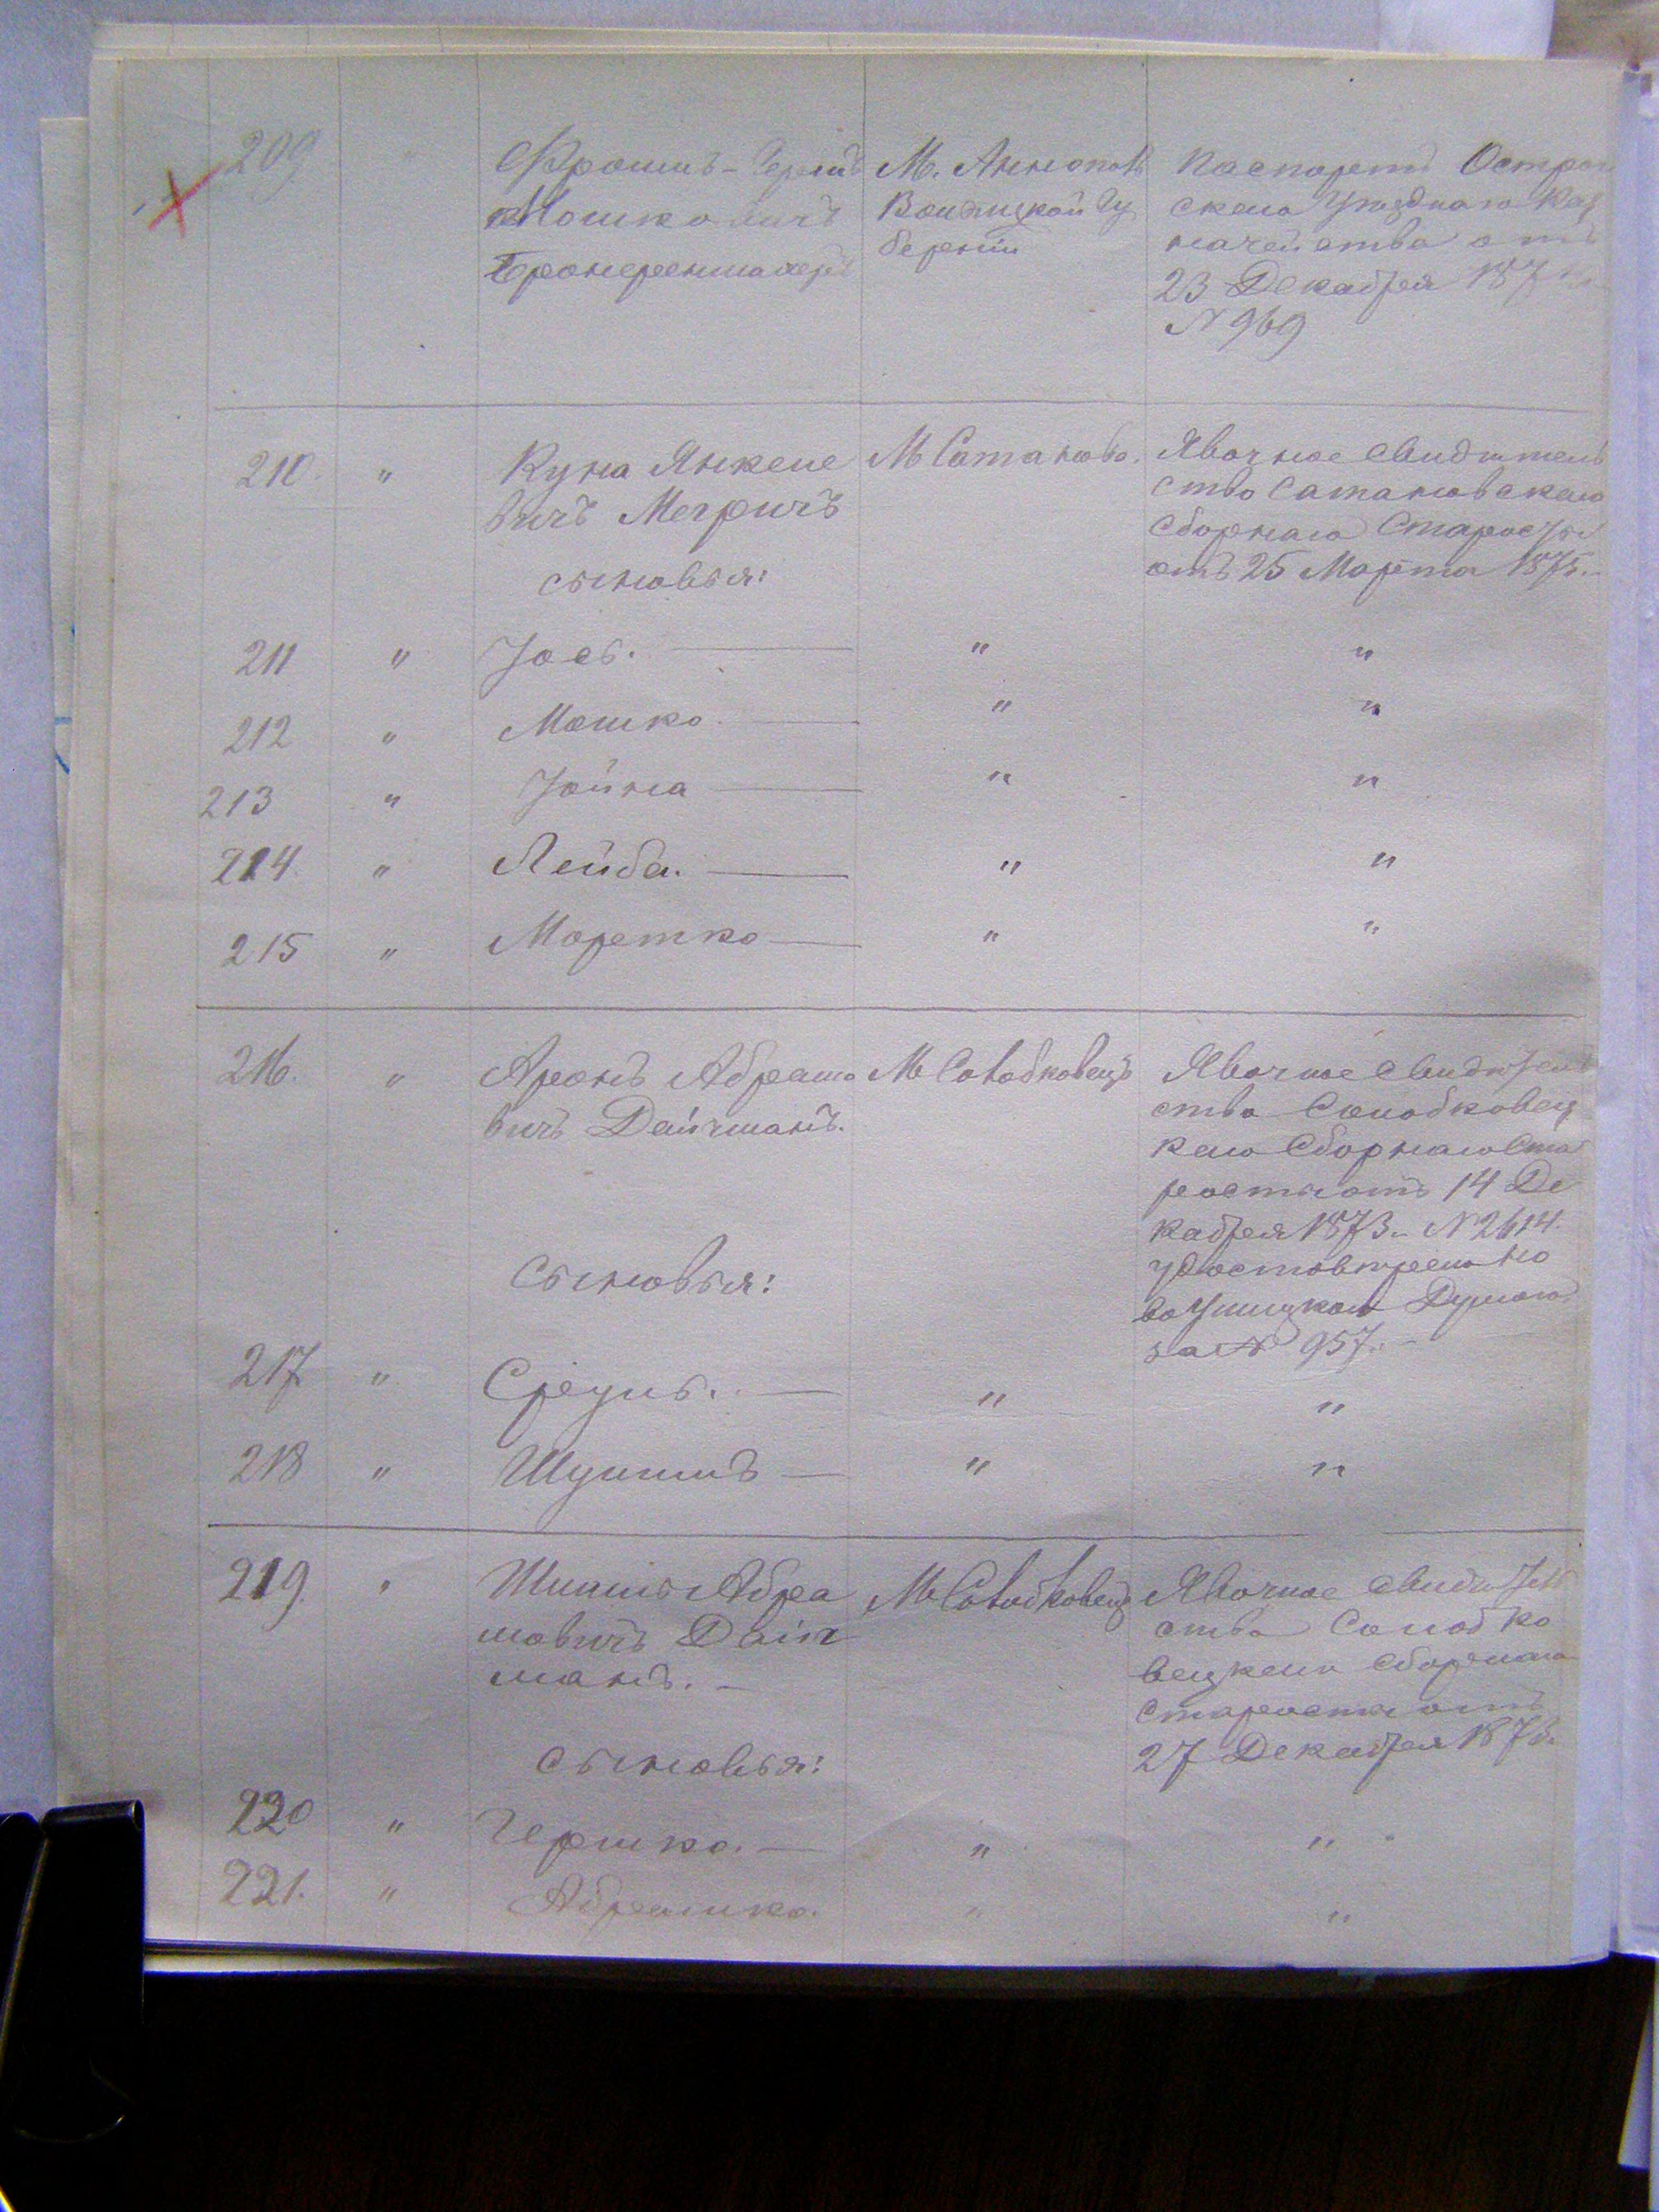 209 " Фроимъ-Герш
Мошковичъ
М. Аннополь
Волынской Гу
берніи
Паспортъ Острож
скаго Уѣзднаго Каз
начейства отъ
23 Декабря 187
№ 969
210. " Куна Янкеле
вичъ Мегричъ
сыновья:
М Сатанова.
Явочное свидѣтель
ство Сатановскаго
Сборнаго Старосты
отъ 25 Марта 1875.
211 " Іось. — " "
212 " Мошко. — " "
213 " Іойна — " "
214. " Лейба. — " "
215 " Мортко — " "
216. " Аронъ Абрамо
вичъ Дайчманъ.
Сыновья:
М Солобковецъ
Явочное свидѣтель
ство Солобковец
каго Сборнаго Ста
росты отъ 14 Де
кабря 1873 № 2614.
удостовѣрено
Ушицкой Думою
за № 957.
217 " Сруль. — " "
218 " Шулимъ — " "
219. " Шмиль Абра
мовичъ Дайч
манъ. —
сыновья:
М Солобковецъ
Явочное свидѣтель
ство Солобко
вецкаго Сборнаго
Старосты отъ
27 Декабря 187
220 " Гершко. — " "
221. " Абрамко. " "